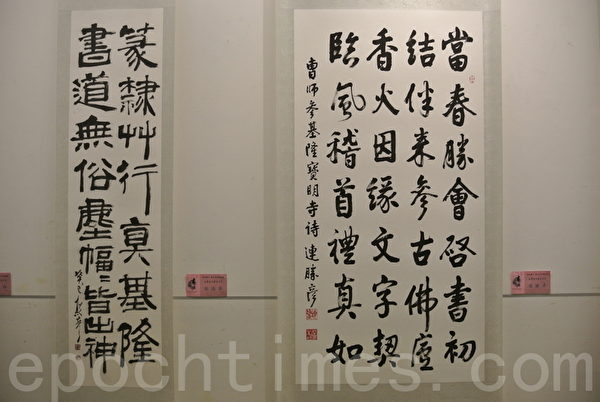 當春勝會啓書初
結伴来參古佛廬
香火因緣文字契
臨風稽首禮真如
曹师參基隆寶明寺诗 連勝彥
篆隸艸行真基隆
書道無俗塵幅〻皆出神
癸巳
epochtimes.com